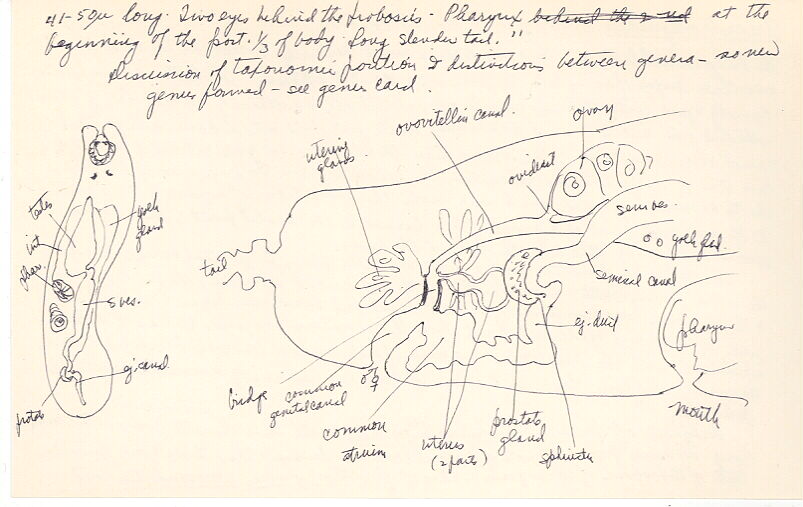 41-50µ long. Two eyes behind the proboscis - Pharynx behind the 2nd at the
beginning of the post. 1/3 of body. Long slender tail."
Discussion of taxonomic position & distinctions between genera - so new
genus formed - see genus card.
ovovitellin canal
ovary
uterine
glands
oviduct
testes
yolk
gland
int
phar.
sem ves.
yolk gld.
tail
seminal canal
s ves.
ej. duct
pharynx
ej. canal
prostat
bridge
common
genital canal
mouth
common
atrium
uterus
(2 parts)
prostate
gland
sphincter